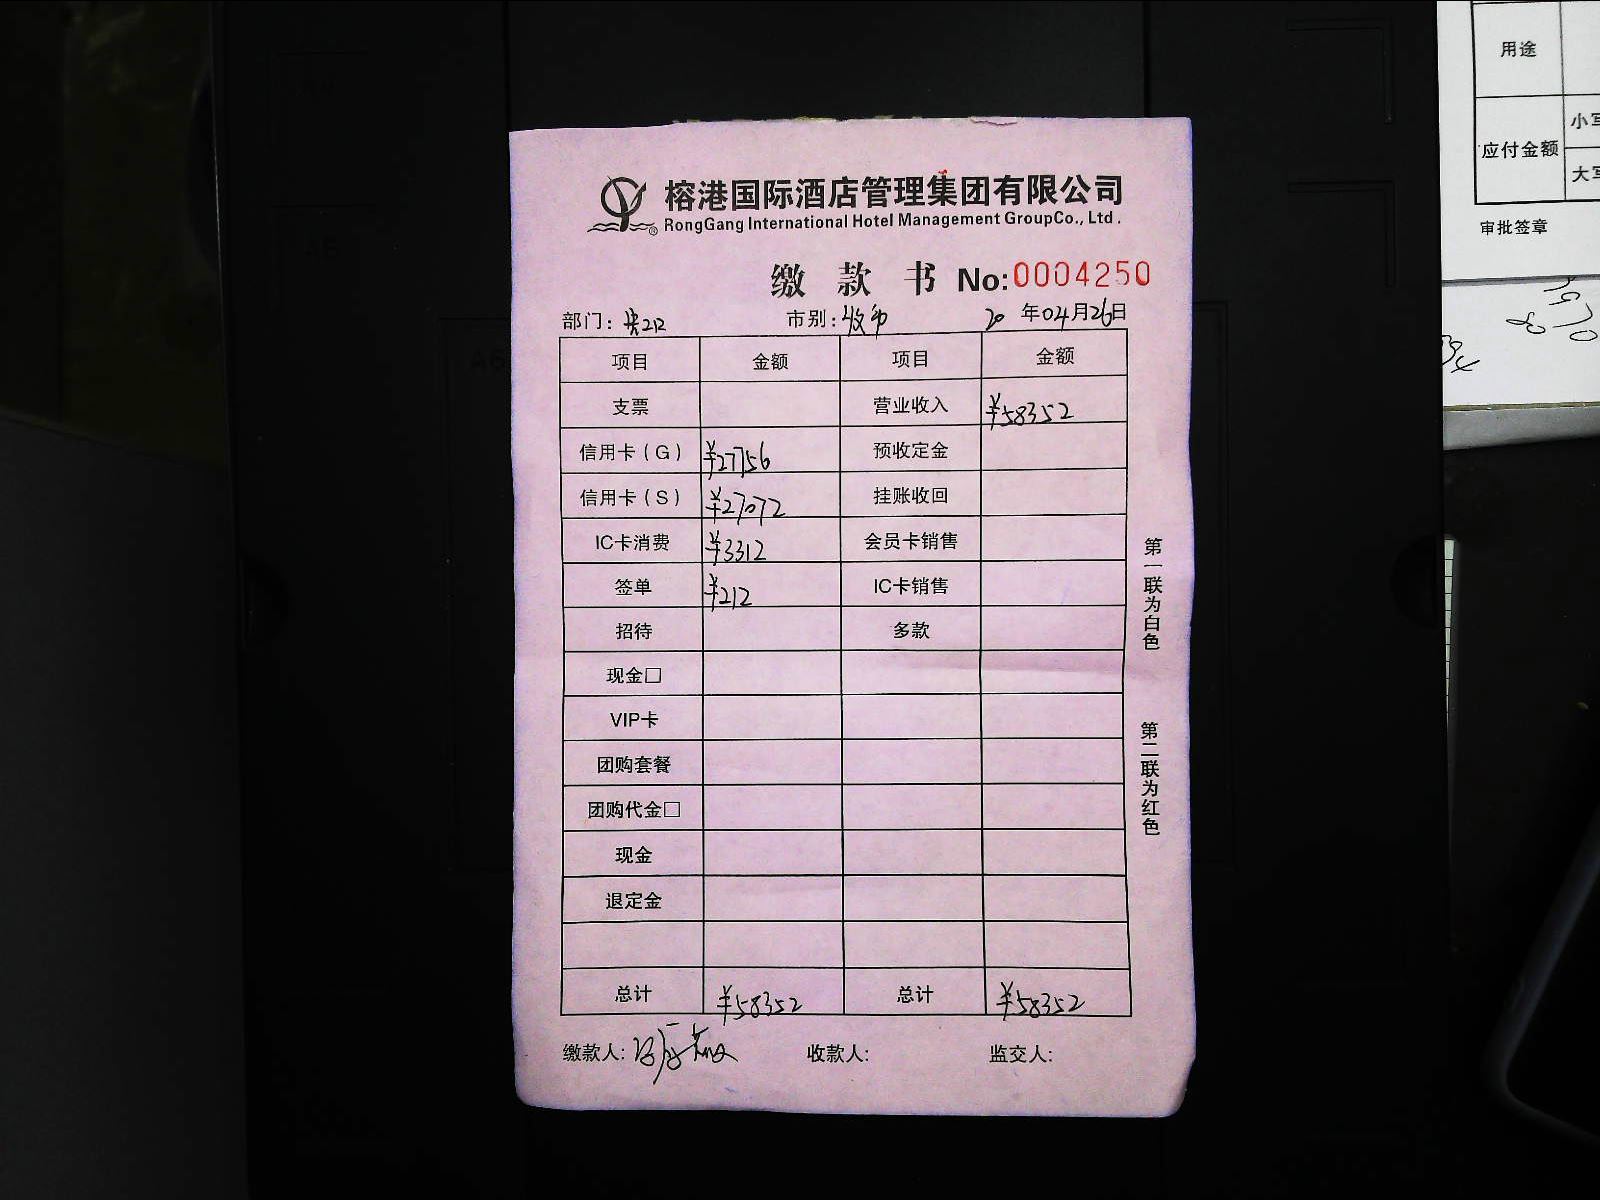 榕港国际酒店管理集团有限公司
RongGang International Hotel Management GroupCo., Ltd.
缴 款 书 No:0004250
部门: 市别: 20 年04月26日
项目 金额 项目 金额
支票 营业收入 ¥58352
信用卡(G) ¥27756 预收定金
信用卡(S) ¥27072 挂账收回
IC卡消费 ¥3312 会员卡销售
签单 ¥212 IC卡销售
招待 多款
现金□
VIP卡
团购套餐
团购代金□
现金
退定金
总计 ¥58352 总计 ¥58352
缴款人: 收款人: 监交人:
第一联为白色
第二联为红色
用途
应付金额
小写
大写
审批签章